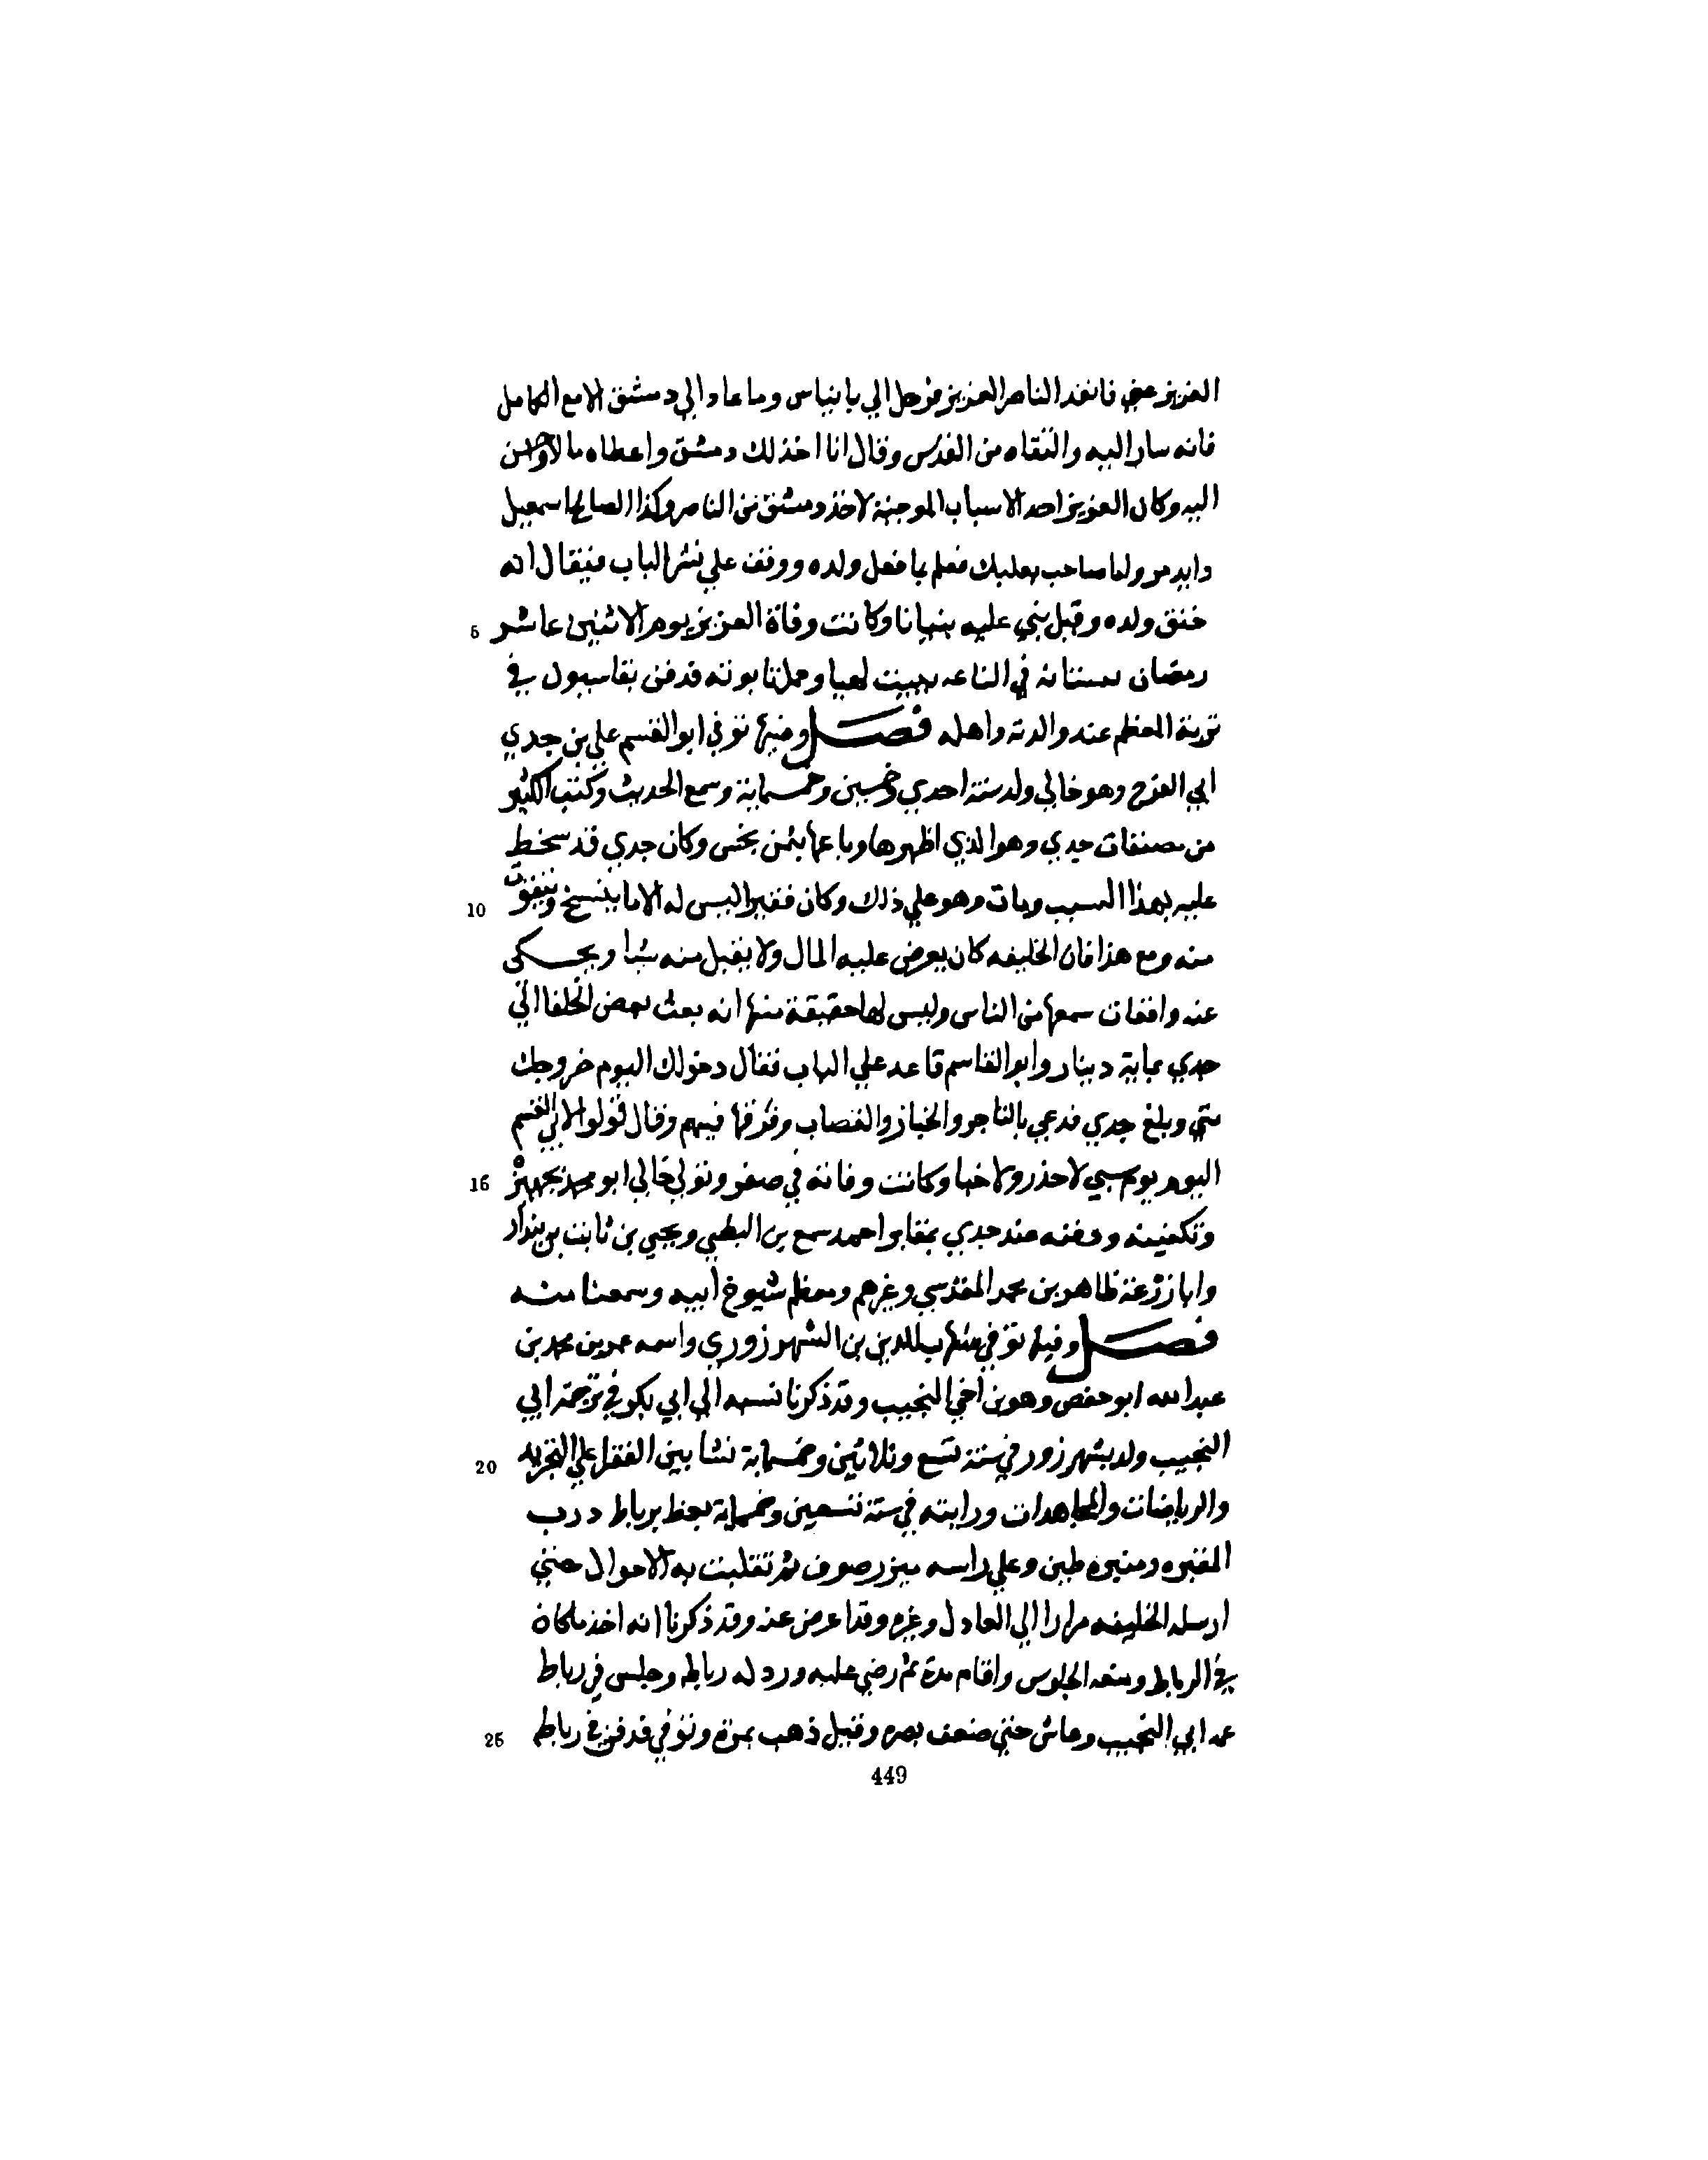 العزيز عني فانفذ الناصر العزيز فرحل الي بانياس وما عاد الي دمشق الا مع الكامل
فانه سار اليه والتقاه من القدس وقال انا اخذ لك دمشق واعطاه مالا واحسن
اليه وكان العزيز احد الاسباب الموجبة لاخذ دمشق من الناصر وكذا الصالح اسمعيل
صاحب بعلبك فعلم ما فعل ولده ووقف علي الباب فيقال انه
خنق ولده وقيل بني عليه بنيانا وكانت وفاة العزيز يوم الاثنين عاشر
رمضان ببستانه في الناعمه ببيت لهيا وحمل تابوته فدفن بقاسيون في
تربة المعظم عند والدته واهله فصل وفيها توفي ابو القسم علي بن جدي
ابي الفرج وهو خالي ولد سنة احدي وخمسين وخمسماية وسمع الحديث وكتب الكثير
من مصنفات جدي وهو الذي اظهرها وباعها بثمن بخس وكان جدي قد سخط
عليه بهذا السبب ومات وهو علي ذلك وكان فقيرا ليس له الا ما ينسخ ويتقوت
منه ومع هذا فان الخليفه كان يعرض عليه المال ولا يقبل منه شيا ويحكى
عنه واقعات سمعها من الناس وليس لها حقيقة منها انه بعث بعض الخلفا الي
جدي بماية دينار وابو القاسم قاعد علي الباب فقال دخولك اليوم خروجك
متي وبلغ جدي فدعي بالتاجر والخباز والقصاب وفرقها فيهم وقال قولوا لابي القسم
اليوم يوم سبي لا حذر ولا خبا وكانت وفاته في صفر وتولي خالي ابو محمد تجهيزه
وتكفينه ودفنه عند جدي بمقابر احمد سمع بن البطي ويحيي بن ثابت بن بندار
وابا زرعة طاهر بن محمد المقدسي وغيرهم ومعظم شيوخ ابيه وسمعنا منه
فصل وفيها توفي شهاب الدين بن الشهرزوري واسمه عمر بن محمد بن
عبد الله ابو حفص وهو بن اخي النجيب وقد ذكرنا نسبه الي ابي بكر في ترجمة ابي
النجيب ولد بشهرزور في سنة تسع وثلاثين وخمسماية نشا بين الفقرا علي التجريد
والرياضات والمجاهدات ورايته في سنة تسعين وخمسماية يعظ برباط درب
المقبره ومنبره طين وعلي راسه ميزر صوف ثم تقلبت به الاحوال حتي
ارسله الخليفه مرارا الي العادل وغيره وقد اعرض عنه وقد ذكرنا انه اخذ ما كان
في الرباط ومنعه الجلوس واقام مدة ثم رضي عليه ورد له رباطه وجلس في رباط
عمه ابي النجيب وعاش حتي ضعف بصره وقيل ذهب بمرة وتوفي فدفن في رباطه
5
10
15
20
25
449